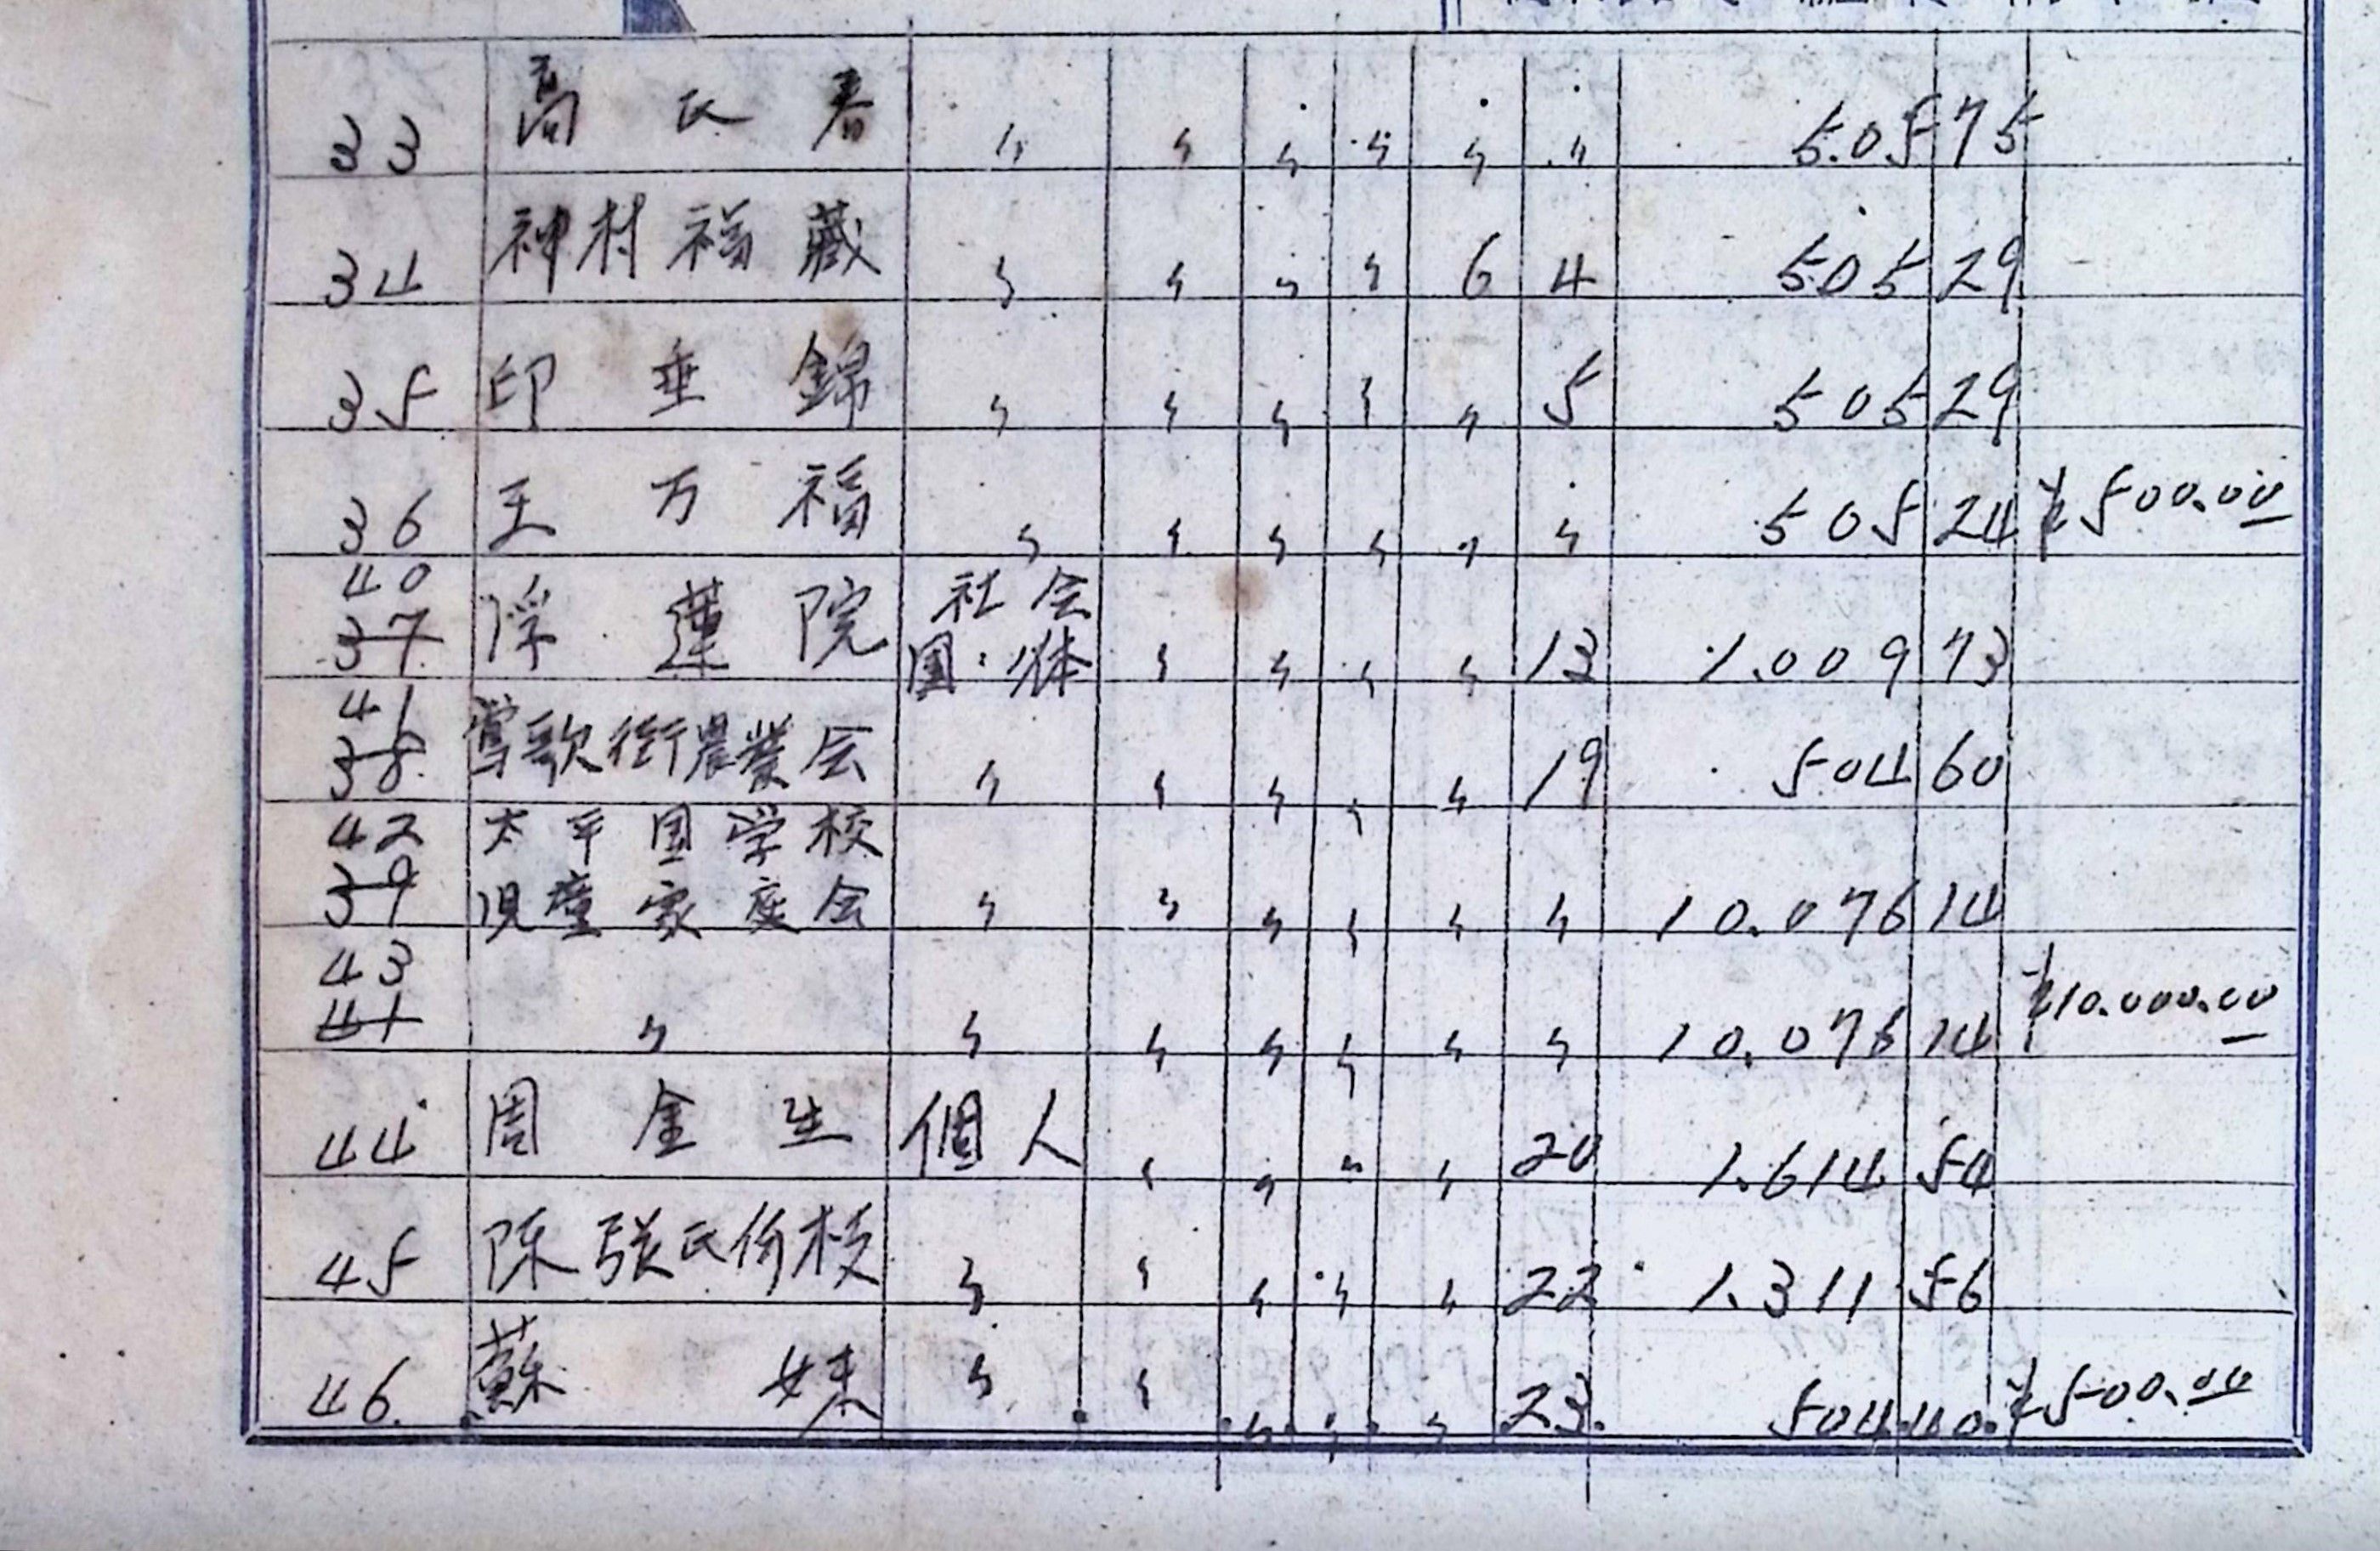 33 高氏春 〃 〃 〃 〃 〃 〃 5.05 75
34 神村福藏 〃 〃 〃 〃 6 4 505 29
35 印垂錦 〃 〃 〃 〃 〃 5 505 29
36 王万福 〃 〃 〃 〃 〃 〃 505 24 ¥500.00
40 社会
37 浮蓮院 団体 〃 〃 〃 〃 13 1.009 73
41
38 鶯歌街農業会 〃 〃 〃 〃 〃 19 504 60
42 太平国学校
39 児童家庭会 〃 〃 〃 〃 〃 〃 10.076 14
43
41 〃 〃 〃 〃 〃 〃 〃 10.076 14 ¥10.000.00
44 周金生 個人 〃 〃 〃 〃 20 1.614 54
45 陳張氏伱枝 〃 〃 〃 〃 〃 22 1.311 56
46. 蘇妹 〃 〃 〃 〃 〃 23. 504 40. ¥500.00